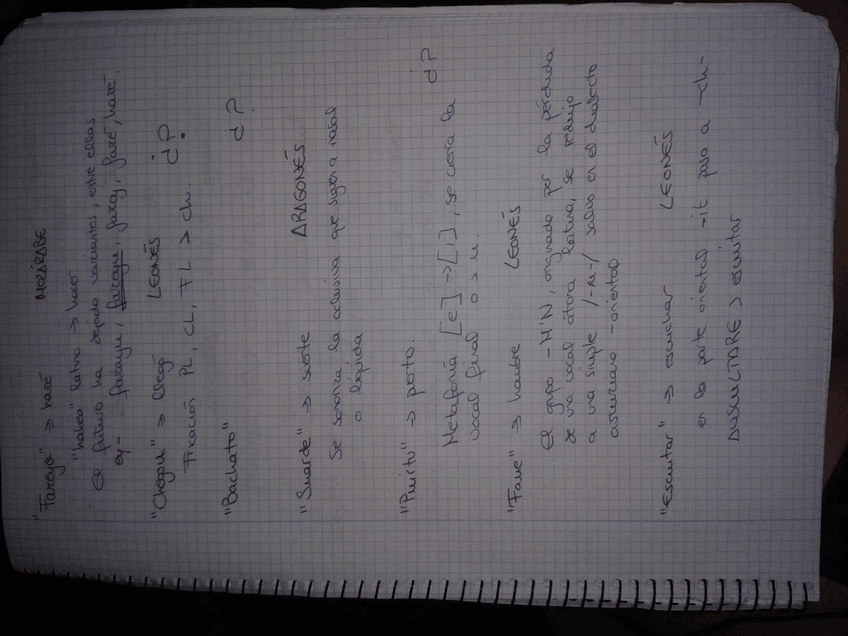 "Farayo" => haré MOZÁRABE
"habeo" latino => haré
El futuro ha dejado variantes, entre ellas
ey - farayu, farayu, faray, farey, faré, haré.
"Chegu" => llegó LEONÉS ¿?
Fijación PL, CL, FL > ch.
"Bachato" ¿?
"Suarde" => suerte ARAGONÉS
Se sonoriza la oclusiva que sigue a nasal
o líquida
"Pirritu" => perro. ¿?
Metafonía [e] -> [i], se cierra la
vocal final o > u.
"Fame" => hambre LEONÉS
El grupo -M'N, originado por la pérdida
de una vocal átona latina, se redujo
a una simple /-m-/ salvo en el dialecto
asturiano-oriental
"Escuitar" => escuchar LEONÉS
en la parte oriental -it pasa a -ch-
AUSCULTARE > escuitar